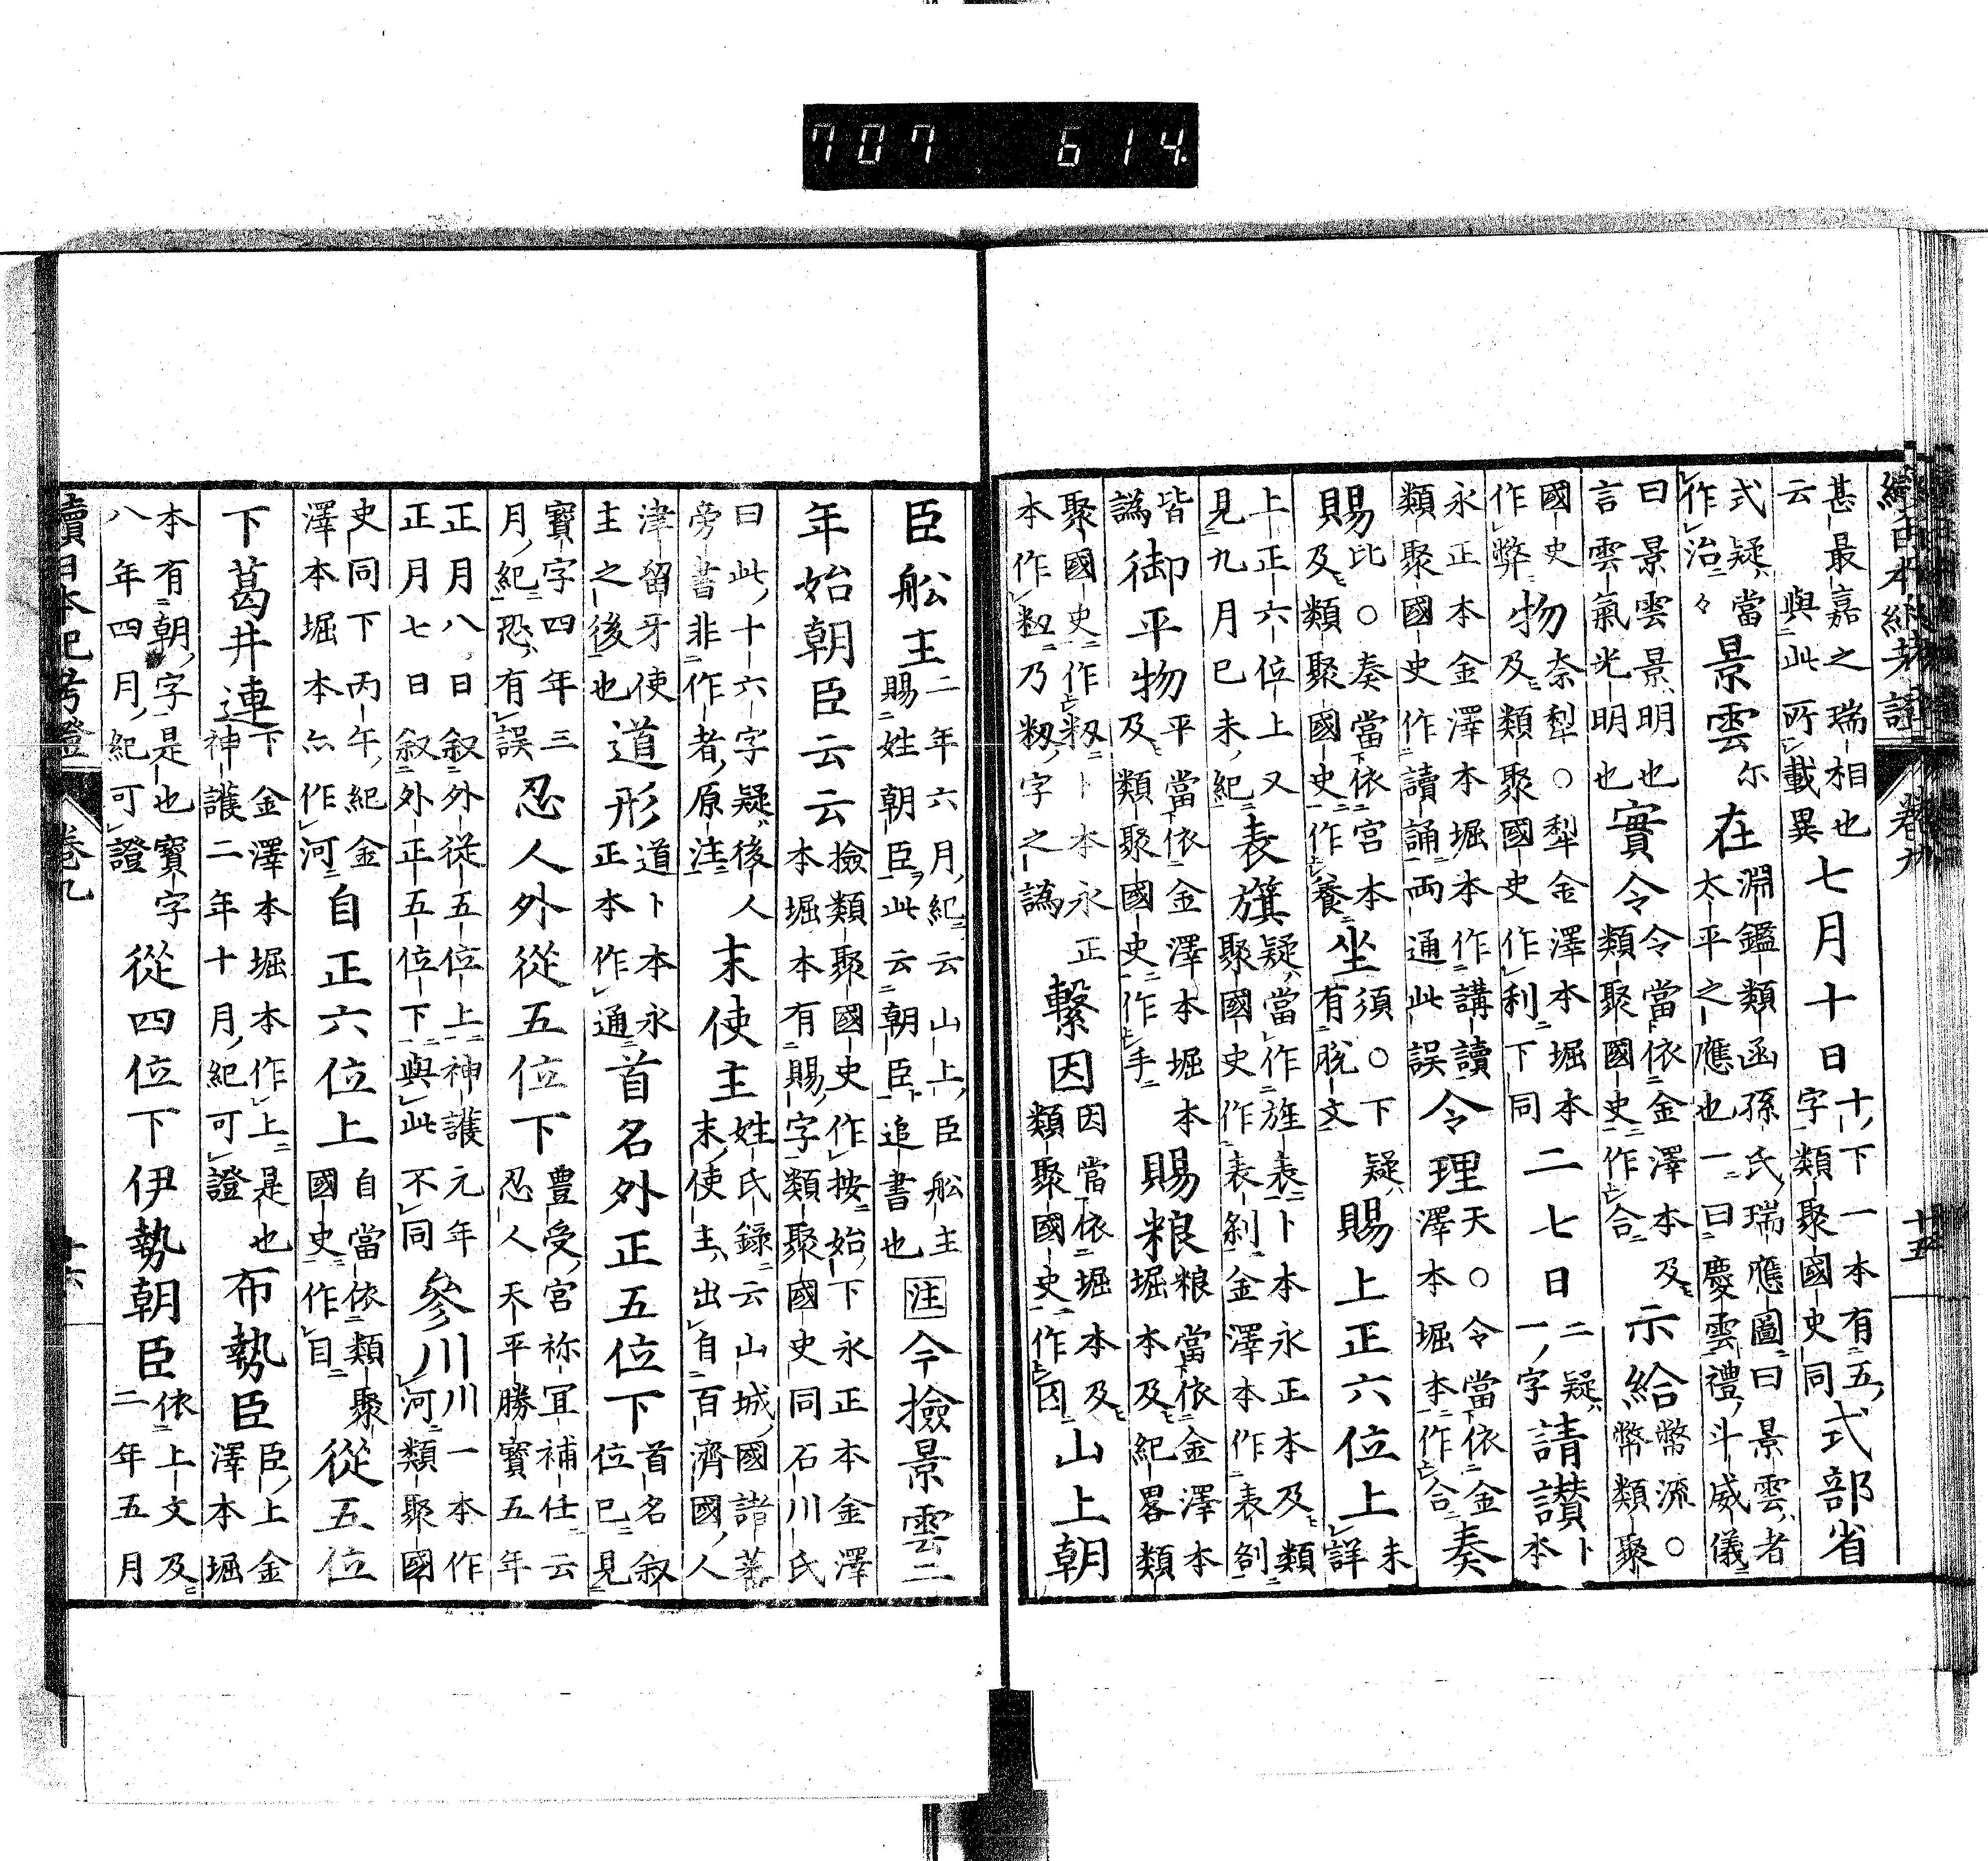 續日本紀考證　卷九　十五
甚最嘉之瑞相也云與此所載異七月十日十下一本有五字類聚國史同式部省
式疑當作治々景雲尓在淵鑑類函孫氏瑞應圖曰景雲者太平之應也一曰慶雲禮斗威儀
曰景雲景明也言雲氣光明也實令令當依金澤本及類聚國史作合示給幣流○幣類聚
國史作弊物奈犁○犁金澤本堀本及類聚國史作利下同二七日二疑一字請讃卜本
永正本金澤本堀本作講讀類聚國史作讀誦両通此誤令理天○令當依金澤本堀本作合奏
賜比○奏當依宮本及類聚國史作養坐須○下疑有脱文賜上正六位上未詳
上正六位上又見九月已未紀表旗疑當作旌表卜本永正本及類聚國史作表剣金澤本作表劒
皆譌御平物平當依金澤本堀本及類聚國史作手賜粮粮當依金澤本堀本及紀畧類
聚國史作籾卜本永正本作籾乃籾字之譌繋因因當依堀本及類聚國史作囚山上朝
臣舩主二年六月紀云山上臣舩主賜姓朝臣此云朝臣追書也注今撿景雲二
年始朝臣云云撿類聚國史作按始下永正本金澤本堀本有賜字類聚國史同石川氏
曰此十六字疑後人旁書非作者原注末使主姓氏録云山城國諸蕃末使主出自百濟國人
津留牙使主之後也道形道卜本永正本作通首名外正五位下首名叙位已見
寶字四年三月紀恐有誤忍人外從五位下豊受宮祢宜補任云忍人天平勝寶五年
正月八日叙外從五位上神護元年正月七日叙外正五位下與此不同參川川一本作河類聚國
史同下丙午紀金澤本堀本亦作河自正六位上自當依類聚國史作目從五位
下葛井連下金澤本堀本作上是也神護二年十月紀可證布勢臣臣上金澤本堀
本有朝字是也寶字八年四月紀可證從四位下伊勢朝臣依上文及二年五月
續日本紀考證　卷九　十六
707　614.